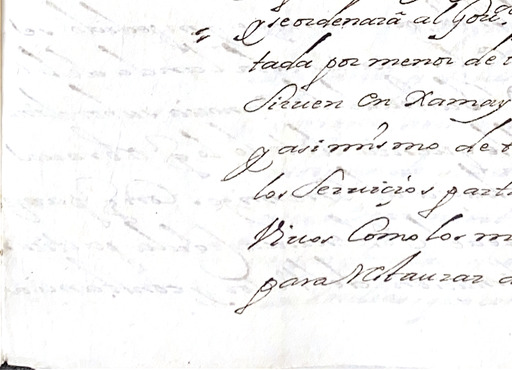 q̃ se ordenarã al Gov.ᵒʳ
tada por menor de
Siruen en Xamay
y asimismo de
los Seruicios parti
Viuos Como los m
para Restaurar